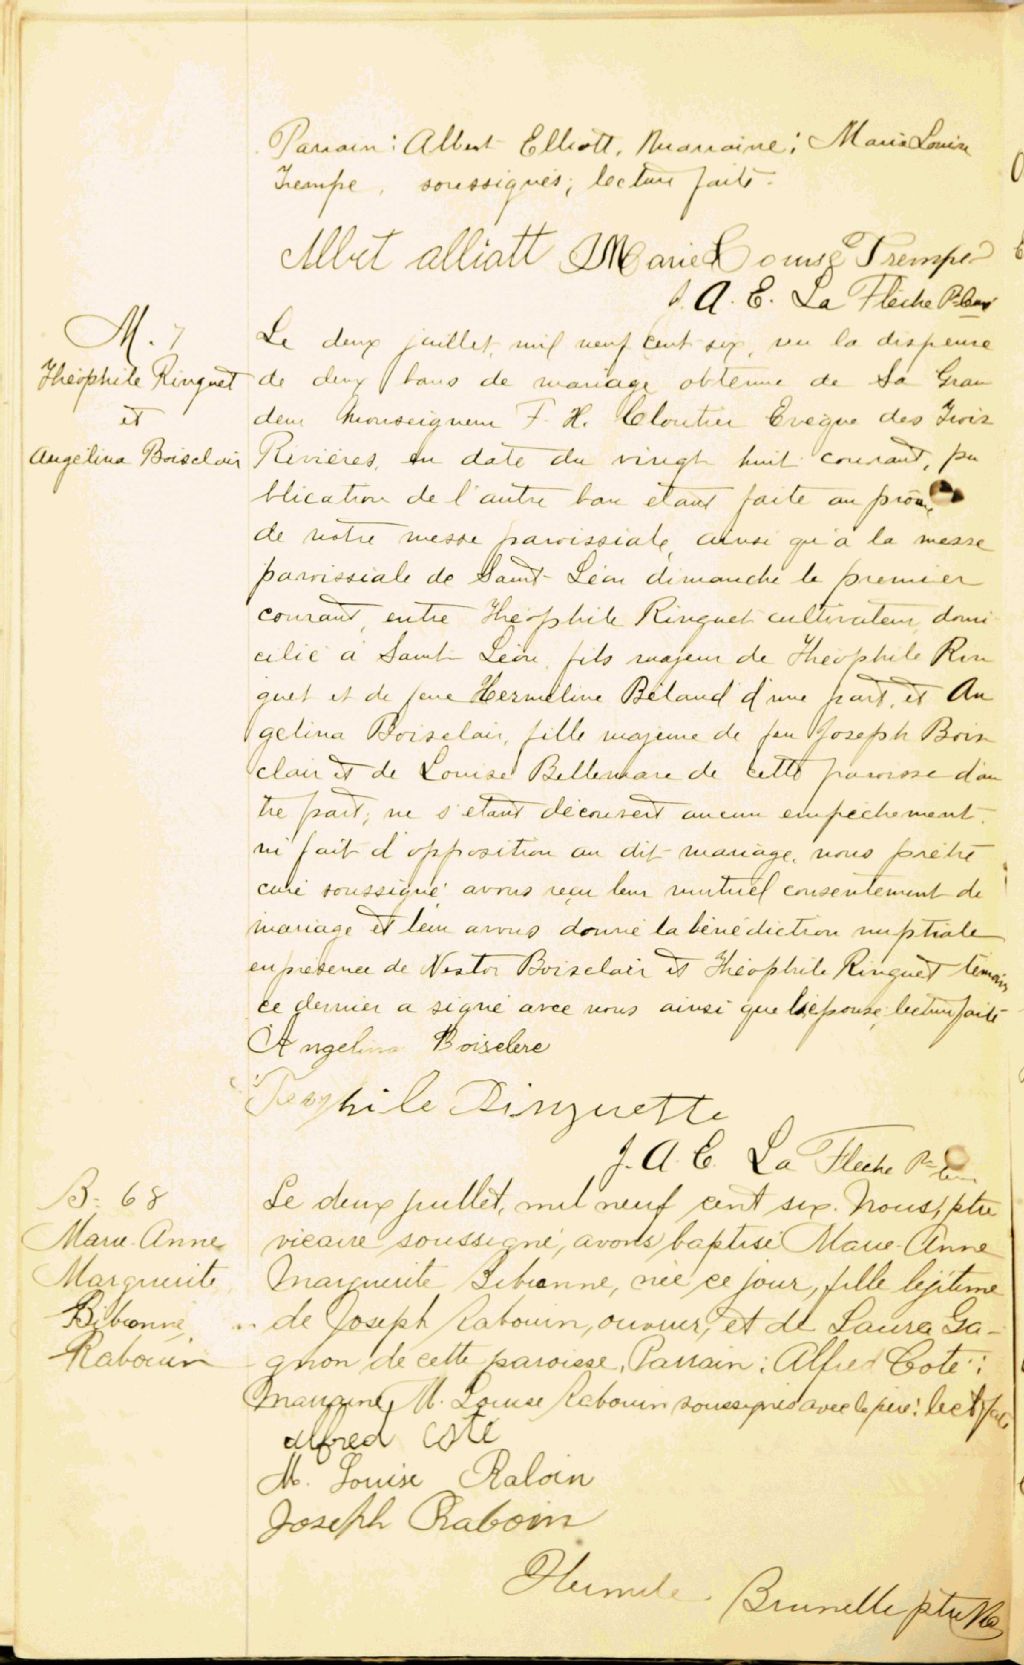 Parrain: Albert Elliott, Marraine; Marie Louise
Trempe, soussignés; lecture faite.
Albet alliatt Marie Louise Tremper
J. A. E. La Flèche Ptre Curé
M. 7
Théophile Ringuet
et
Angélina Boisclair
Le deux juillet, mil neuf cent six, vu la dispense
de deux bans de mariage obtenue de Sa Gran
deur Monseigneur F. H. Cloutier Evêque des Trois
Rivières, en date du vingt huit courant, pu
blication de l'autre ban étant faite au prône
de notre messe paroissiale, ainsi qu'à la messe
paroissiale de Saint Léon dimanche le premier
courant, entre Théophile Ringuet cultivateur, domi
cilié à Saint Léon, fils majeur de Théophile Rin
guet et de feue Hermeline Béland d'une part, et An
gelina Boisclair, fille majeure de feu Joseph Bois
clair et de Louise Bellemare de cette paroisse d'au
tre part; ne s'étant découvert aucun empêchement,
ni fait d'opposition au dit mariage, nous prêtre
curé soussigné avons reçu leur mutuel consentement de
mariage et leur avons donné la bénédiction nuptiale
en présence de Nestor Boisclair et Théophile Ringuet témoins
ce dernier a signé avec nous ainsi que l'épouse; lecture faite
Angelina Boisclere
Teophile Ringuette
J. A. E. La Flèche Ptre Curé
B. 68
Marie-Anne
Marguerite
Bibianne
Rabouin
Le deux juillet, mil neuf cent six. Nous, ptre
vicaire soussigné, avons baptisé Marie-Anne
Marguerite Bibianne, née ce jour, fille légitime
de Joseph Rabouin, ouvrier, et de Laura Ga-
gnon de cette paroisse. Parrain: Alfred Coté;
Marraine, M. Louise Rabouin soussignés avec le père: lect. faite
alfred coté
M. Louise Raboin
Joseph Raboin
Brunelle ptre Vic